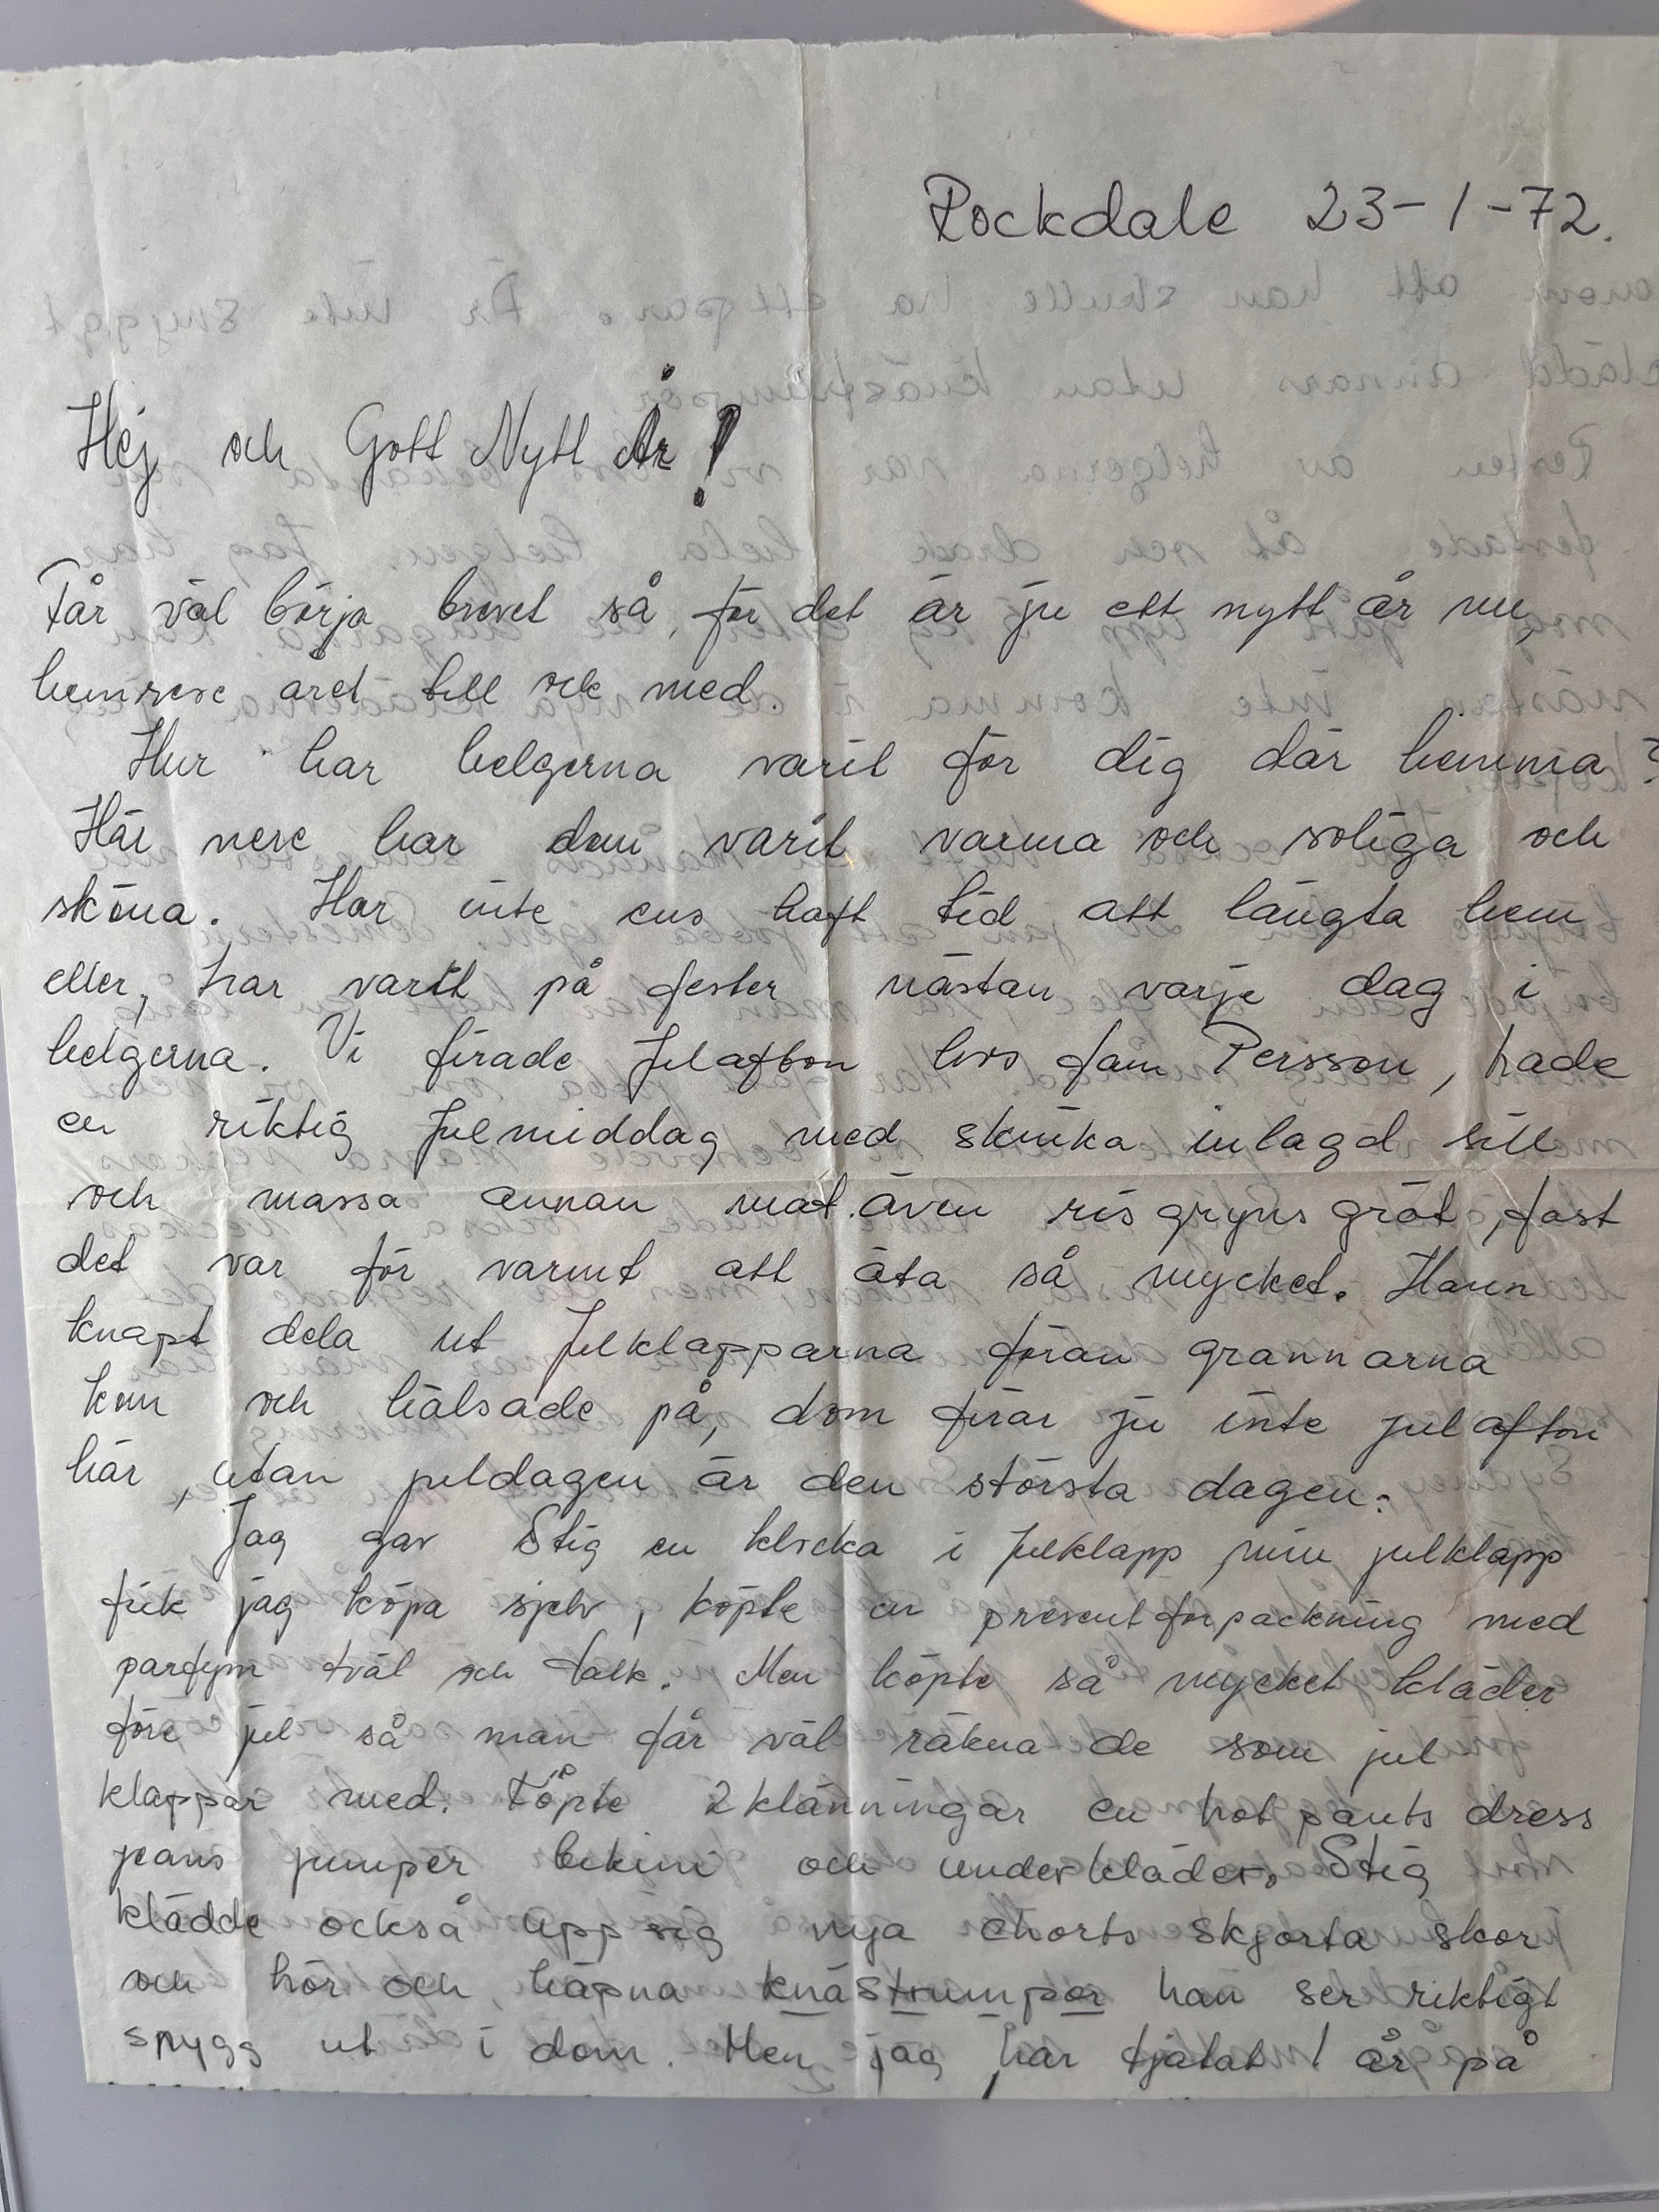 Rockdale 23-1-72.
Hej och Gott Nytt År!
Får väl börja brevet så, för det är ju ett nytt år nu,
hemrese året till ock med.
Hur har helgerna varit för dig där hemma?
Här nere har dom varit varma och soliga och
sköna. Har inte ens haft tid att längta hem
eller, har varit på fester nästan varje dag i
helgerna. Vi firade Julafton hos fam Persson, hade
en riktig Julmiddag med skinka inlagd sill
och massa annan mat. även ris gryns gröt, fast
det var för varmt att äta så mycket. Hann
knapt dela ut Julklapparna förän grannarna
kom och hälsade på, dom firar ju inte julafton
här, utan juldagen är den största dagen.
Jag gav Stig en klocka i Julklapp, min julklapp
fick jag köpa sjelv, köpte en presentförpackning med
parfym tvål och talk. Men köpte så mycket kläder
före jul så man får väl räkna de som jul
klappar med. Köpte 2 klänningar en hot pants dress
jeans jumper bikini och underkläder. Stig
klädde också upp sig nya chorts skjorta skor
och hör och häpna knästrumpor han ser riktigt
snygg ut i dom. Men jag har tjatat 1 år på